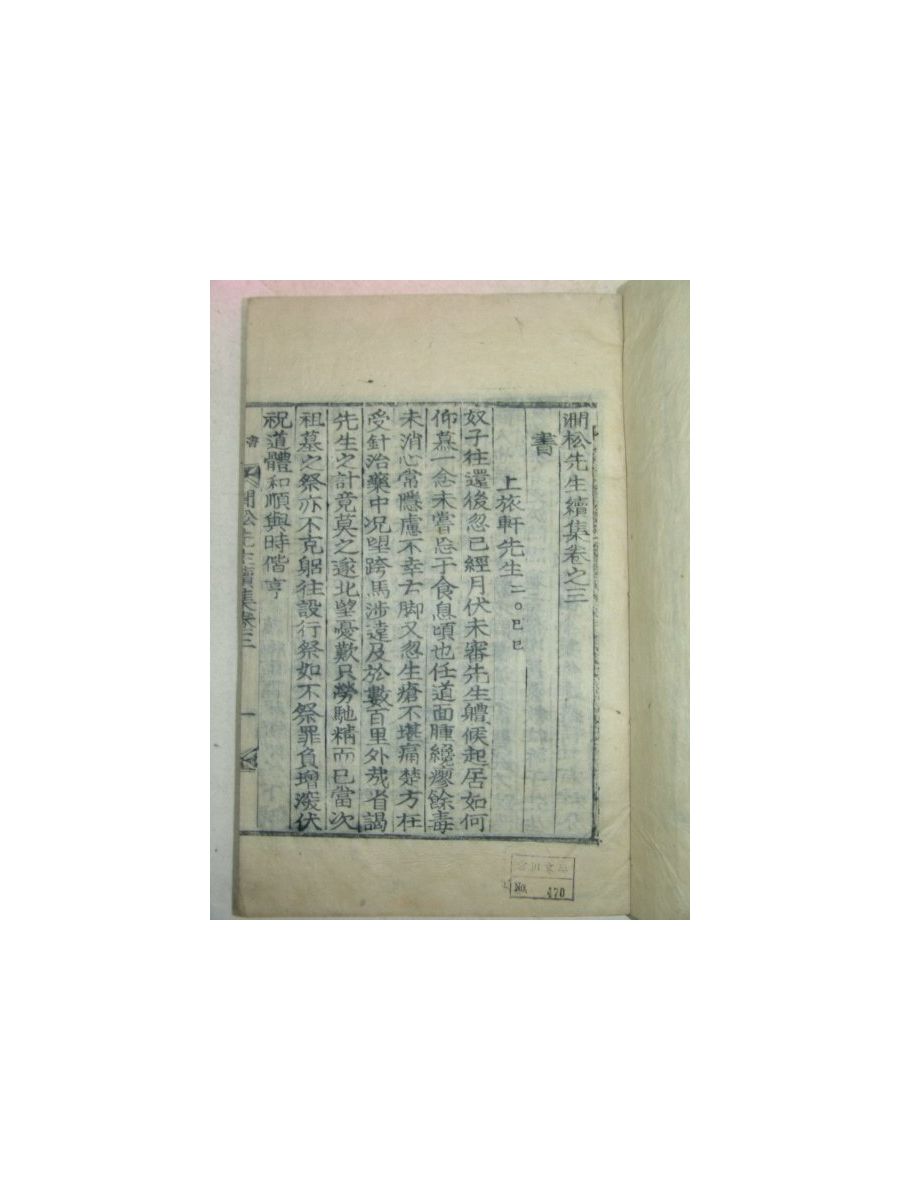 澗松先生續集卷之三
書
上旅軒先生 二○己巳
奴子往還後忽已經月伏未審先生軆候起居如何
仰慕一念未嘗忘于食息頃也任道面腫纔瘳餘毒
未消心常隱慮不幸右脚又忽生瘡不堪痛楚方在
受針治藥中况望跨馬涉遠及於數百里外哉省謁
先生之計竟莫之遂北望憂歎只勞馳精而已當次
祖墓之祭亦不克躬往設行祭如不祭罪負增深伏
祝道體和順與時偕亨
書 澗松先生續集卷三 一
No. 470